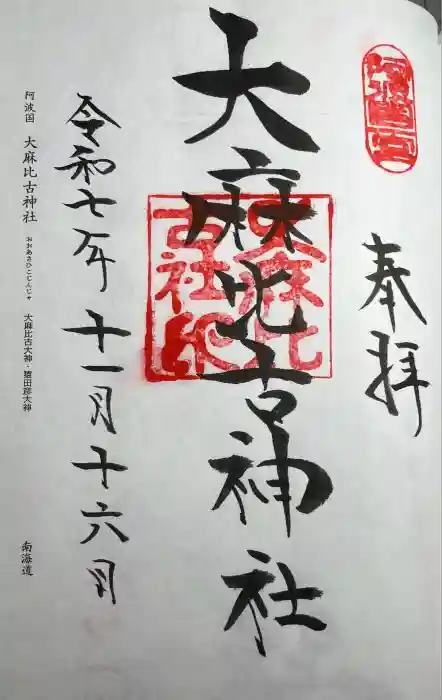 奉拝
大麻比古神社
令和七年十一月十六日
阿波国 大麻比古神社 おおあさひこじんじゃ 大麻比古大神・猿田彦大神 南海道